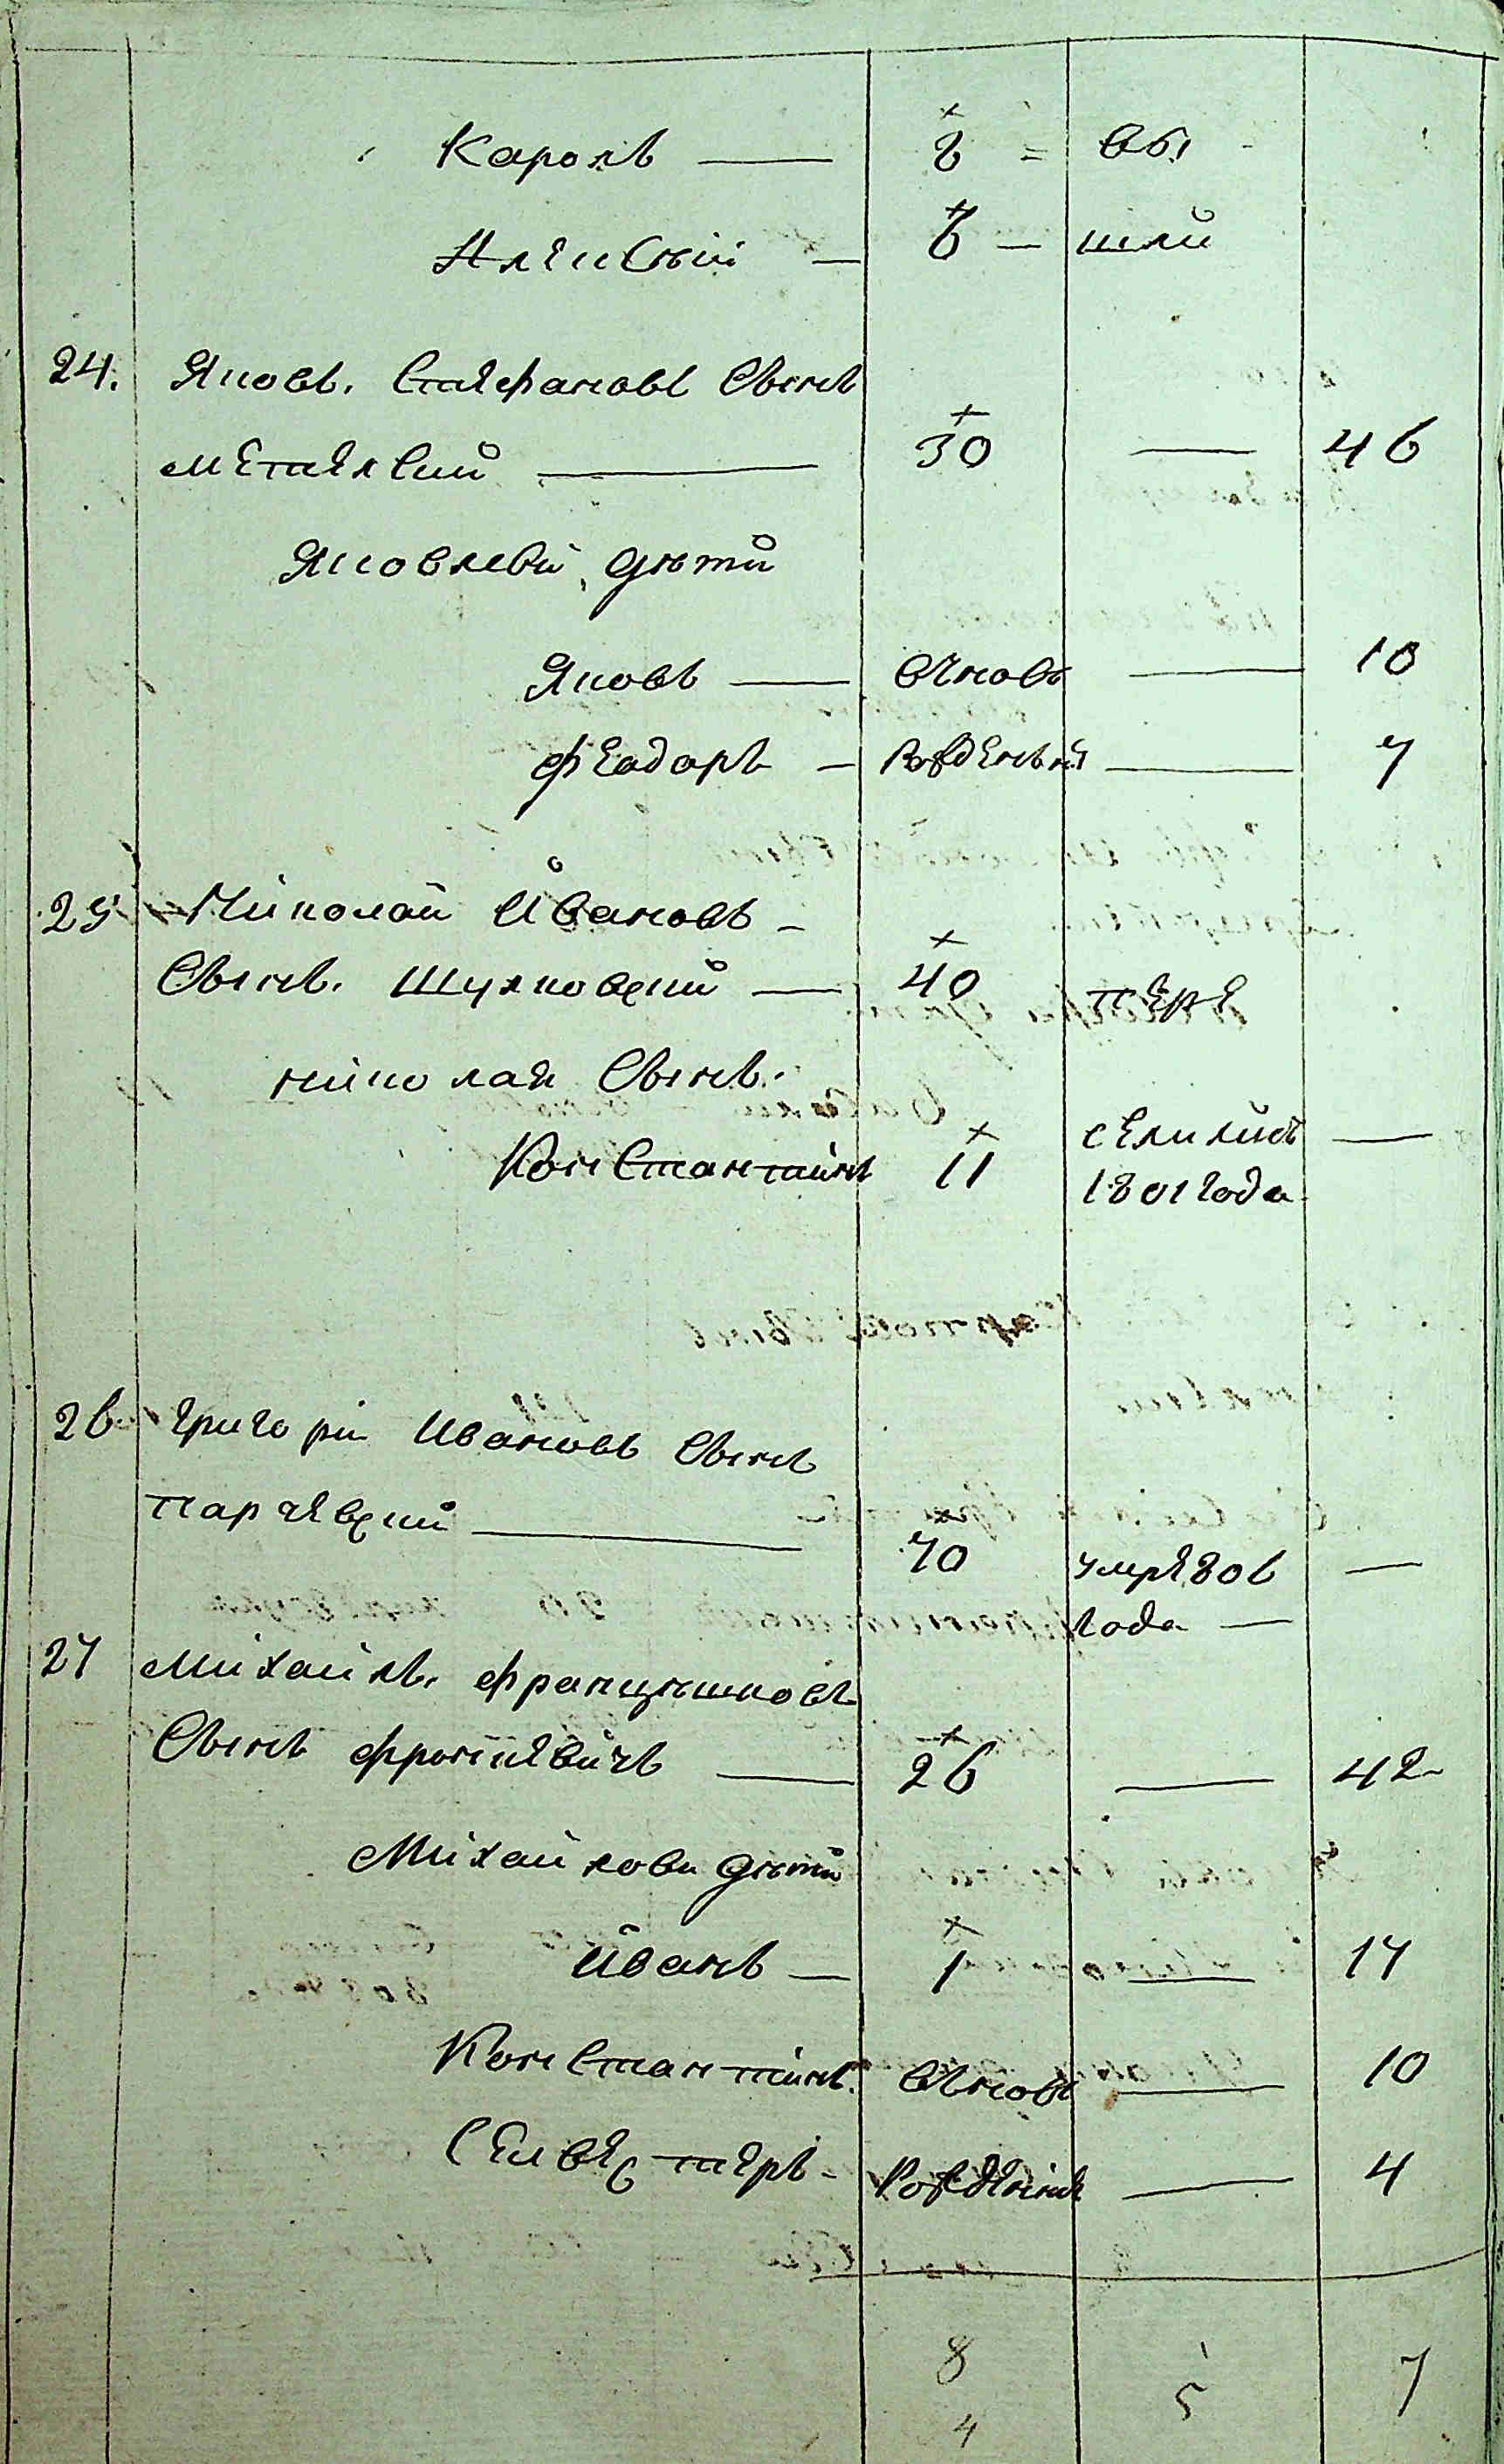 Кароль — 8 = вы
Алексѣй — 6 — шли
24. Яковъ Стефановъ Сынъ
Метелский — 30 — 46
Яковлеви дѣти
Яковъ — вновь — 10
Феодоръ — рожденный — 7
25 Николай Ивановъ
Сынъ Шулковский — 40 пере
николая Сынъ
Константинъ 11 селились —
1801 года
26 григорiй Ивановъ Сынъ
парчевский — 70 умре 806 —
года —
27 Михайлъ францышковъ
Сынъ — 26 — 42
Михайлови дѣти
Иванъ — 1 — 17
Константинъ вновь — 10
Селвестеръ рожденные — 4
8 5 7
4